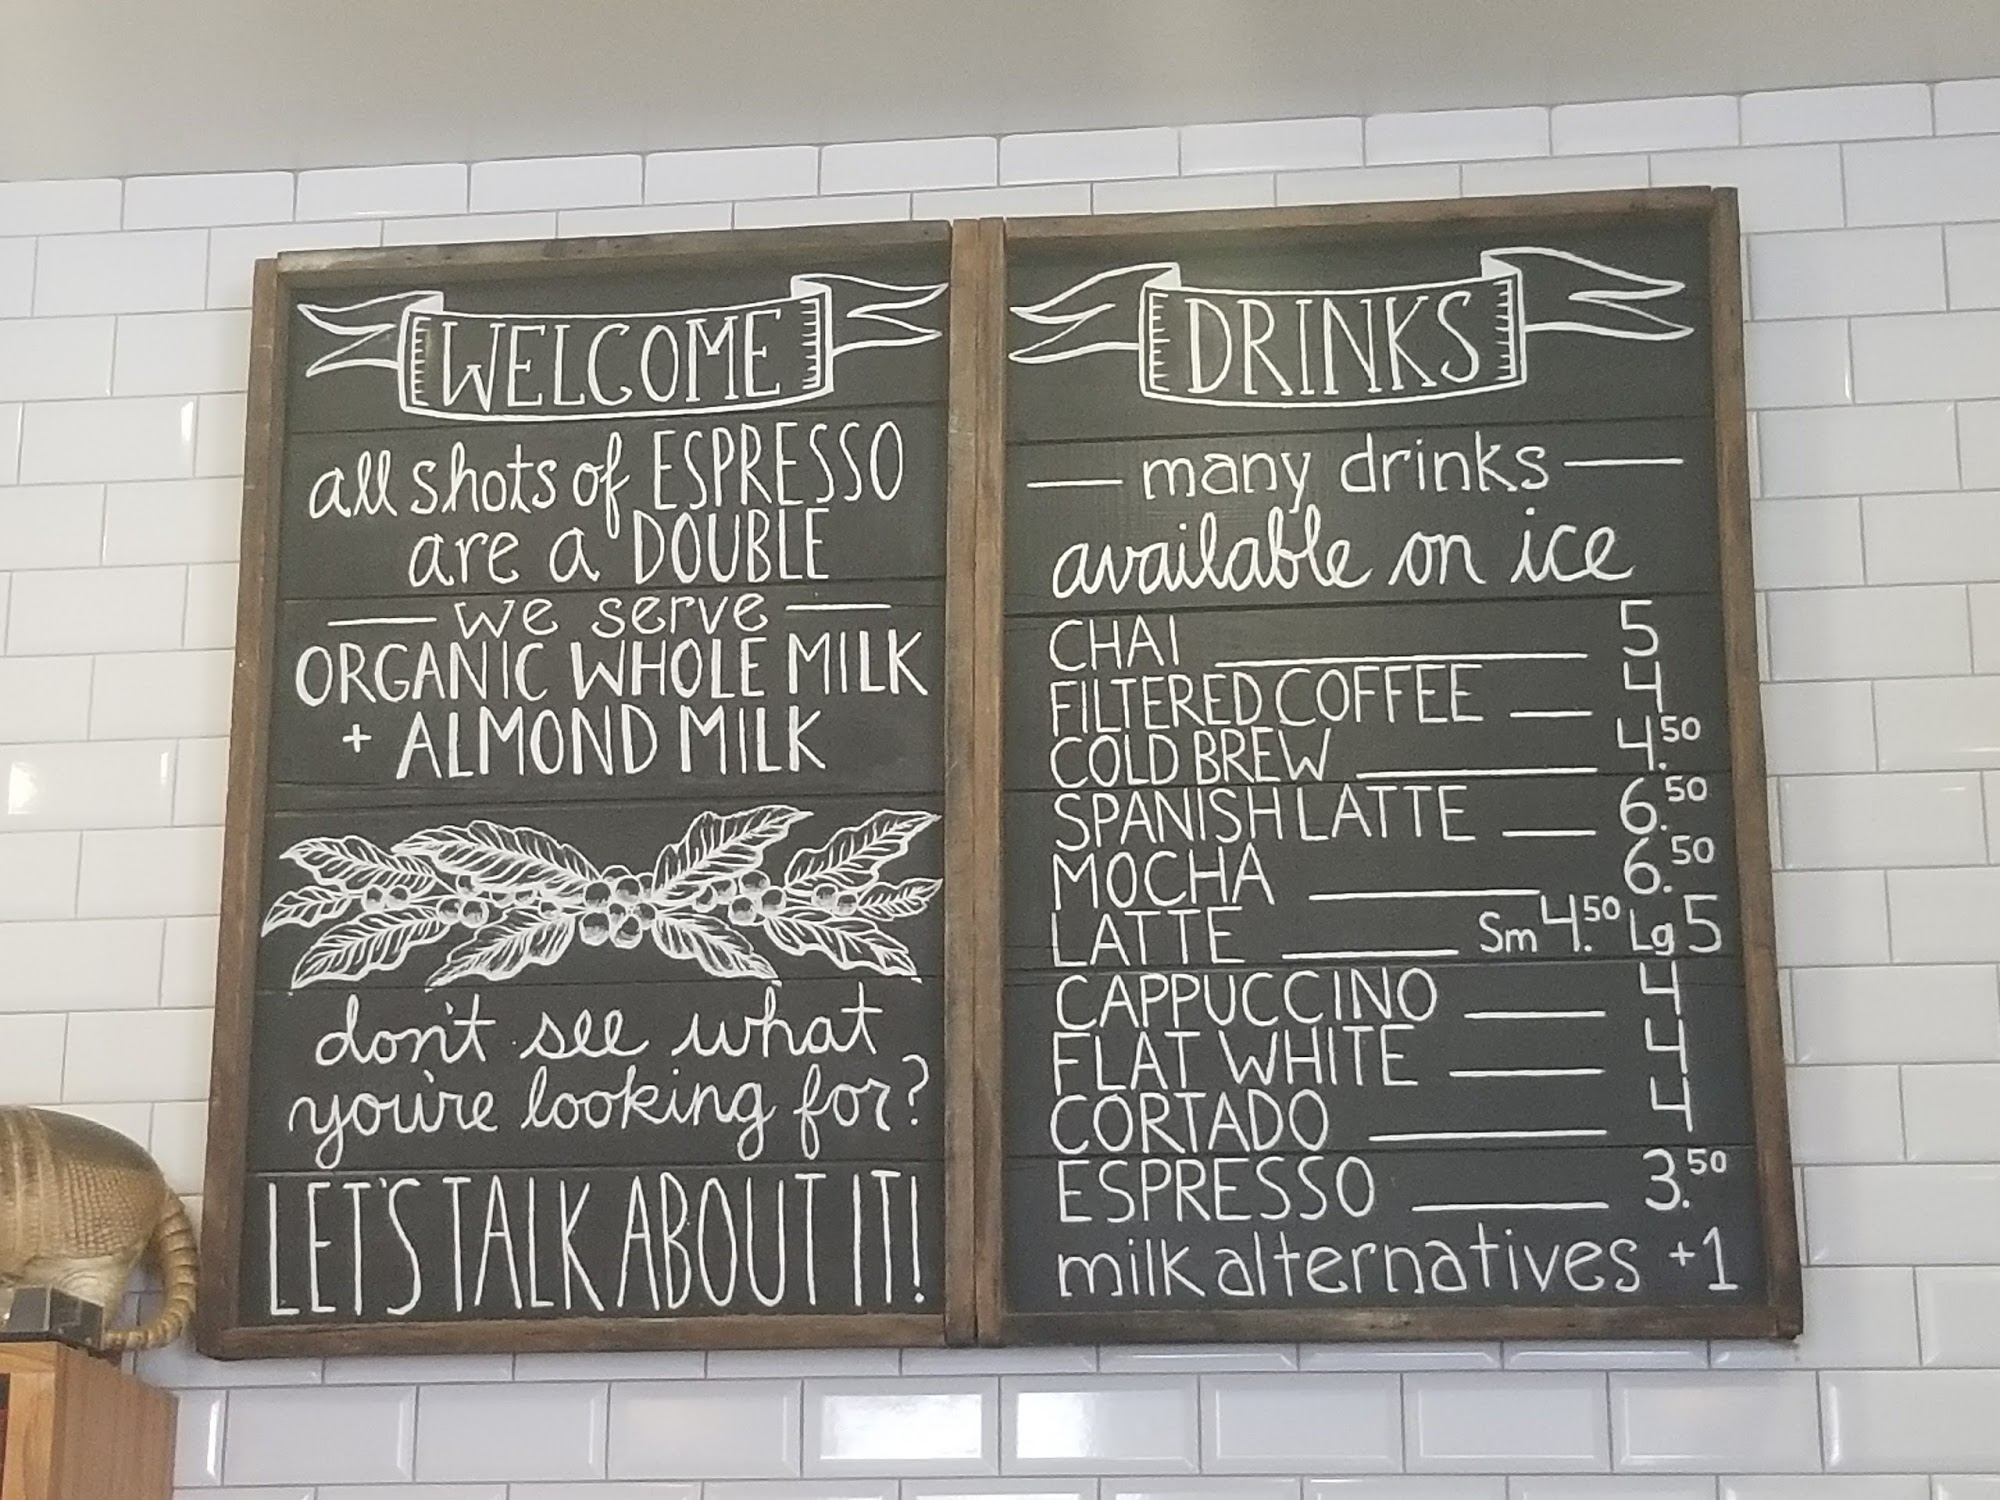 WELCOME
all shots of ESPRESSO
are a DOUBLE
we serve
ORGANIC WHOLE MILK
+ ALMOND MILK
don't see what
you're looking for?
LET'S TALK ABOUT IT!
DRINKS
many drinks
available on ice
CHAI 5
FILTERED COFFEE 4
COLD BREW 4.50
SPANISH LATTE 6.50
MOCHA 6.50
LATTE Sm 4.50 Lg 5
CAPPUCCINO 4
FLAT WHITE 4
CORTADO 4
ESPRESSO 3.50
milk alternatives +1